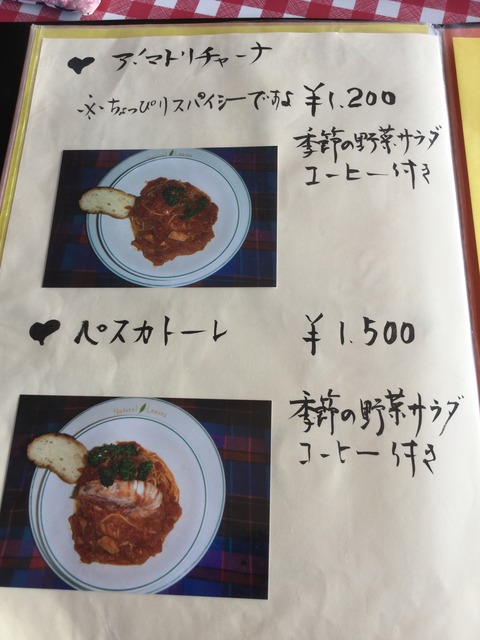 ♥ アマトリチャーナ
※ちょっぴりスパイシーですよ ¥1.200
季節の野菜サラダ
コーヒー付き
♥ ペスカトーレ ¥1.500
Natural Leaves
季節の野菜サラダ
コーヒー付き